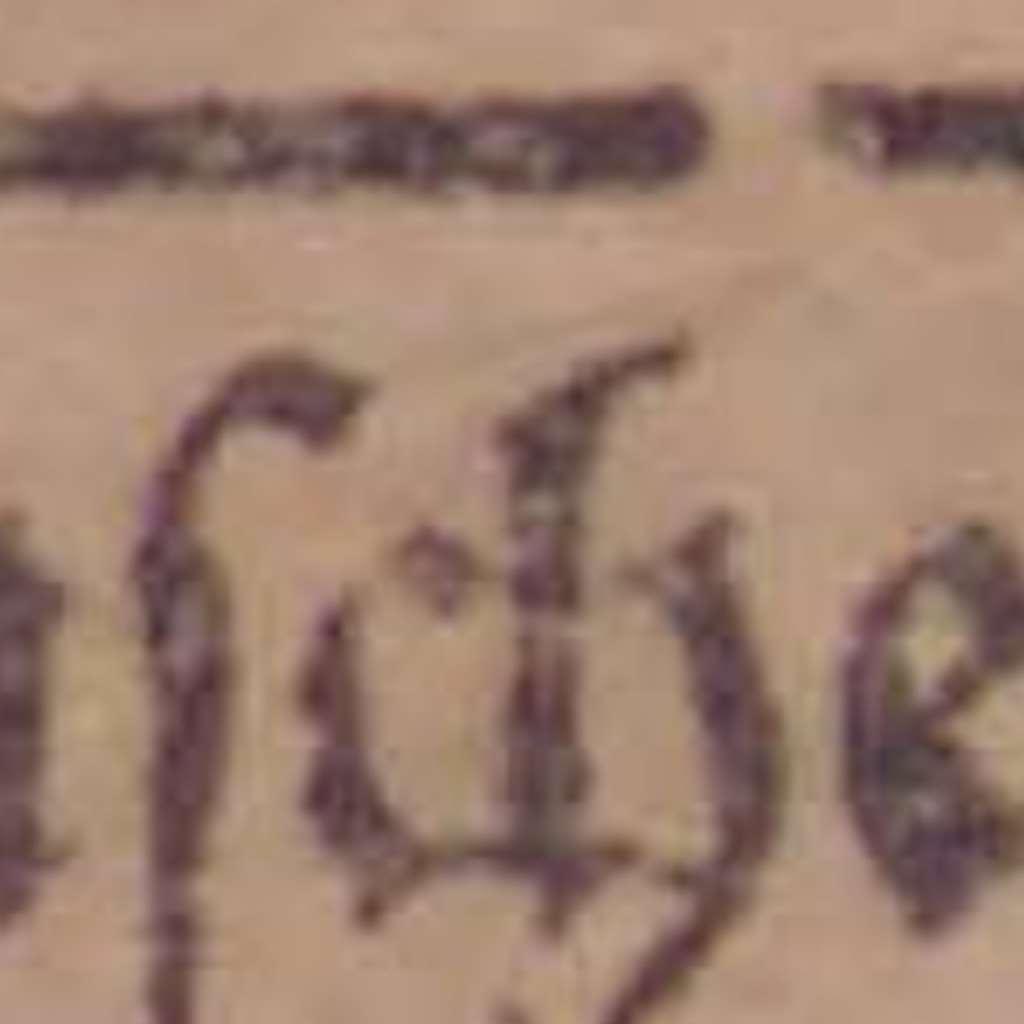 ſche